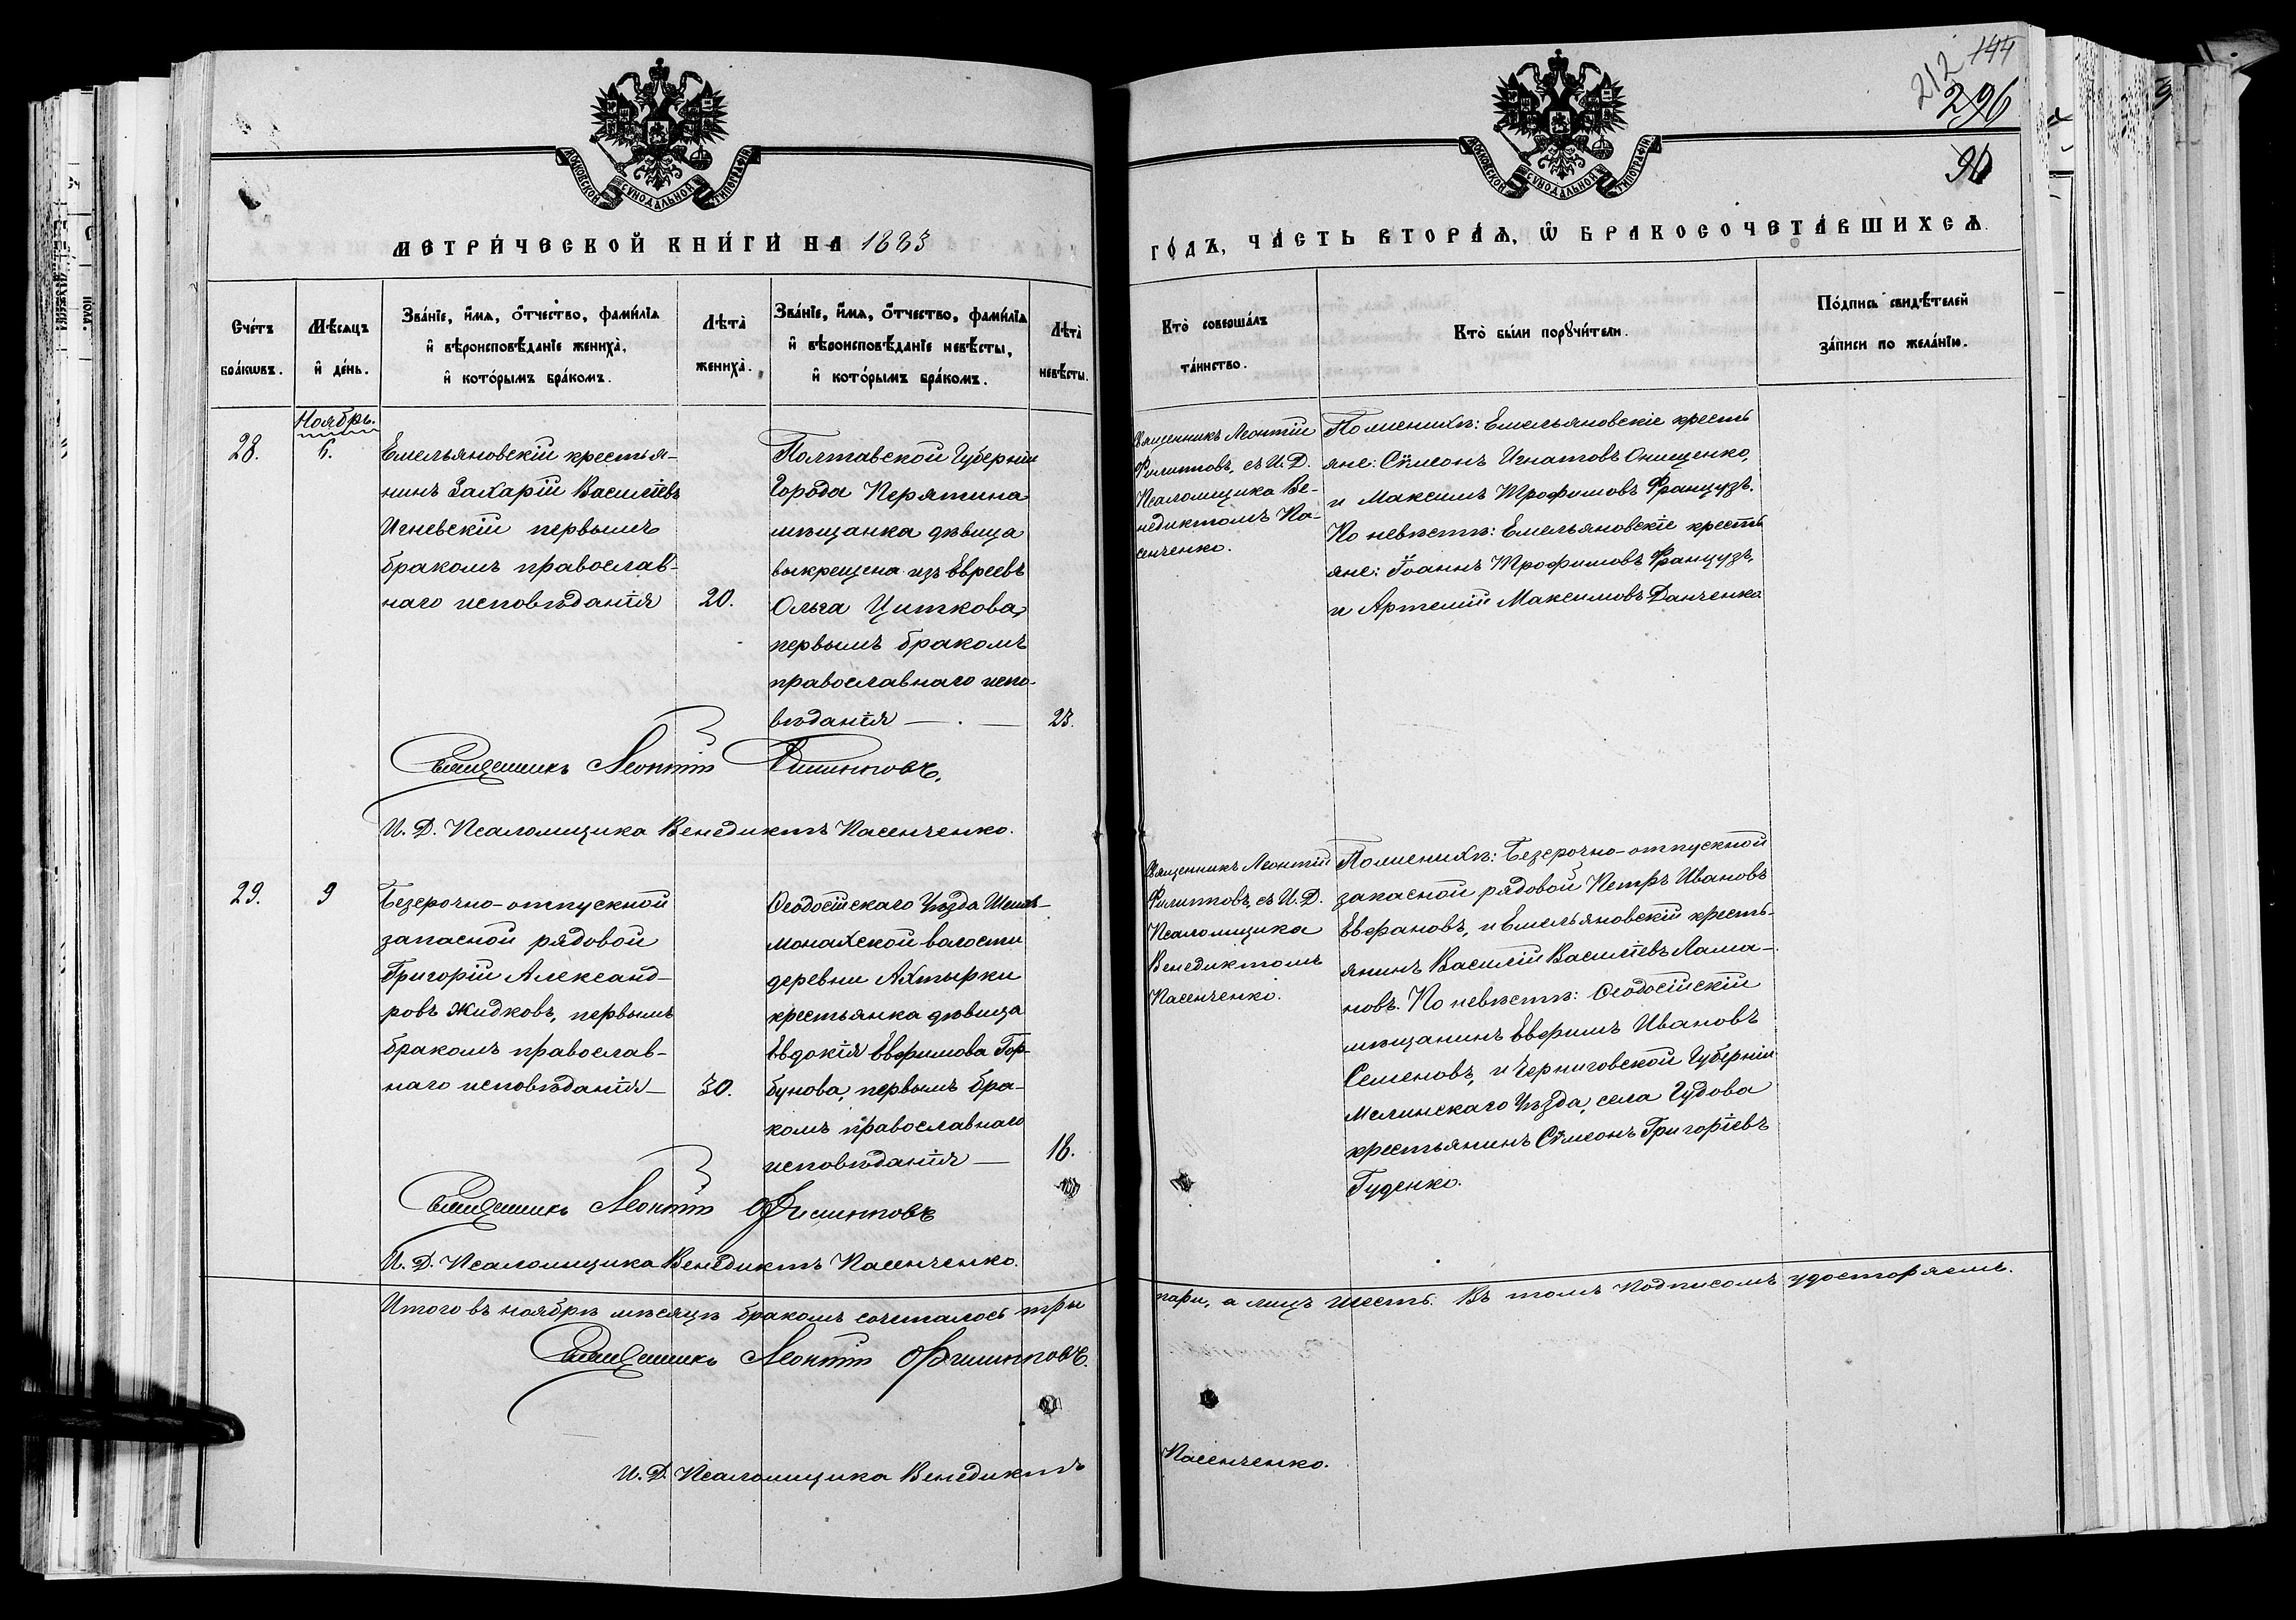 212 144
296
96
МОСКОВСКОЙ СѴНОДАЛЬНОЙ ТИПОГРАФІИ
МОСКОВСКОЙ СѴНОДАЛЬНОЙ ТИПОГРАФІИ
МЕТРИ́ЧЕСКОЙ КНИ́ГИ НА 1883
ГО́ДЪ, ЧА́СТЬ ВТОРА́Ѧ, Ѡ БРАКОСОЧЕТА́ВШИХСѦ.
Сче́тъ
бра́кѡвъ.
Мѣ́сяцъ
и де́нь.
Зва́нїе, и́мѧ, о́тчество, фами́лїѧ
и вѣроисповѣ́данїе жениха̀,
и кото́рымъ бра́комъ.
Лѣта̀
жениха̀.
Зва́нїе, и́мѧ, о́тчество, фами́лїѧ
и вѣроисповѣ́данїе невѣ́сты,
и кото́рымъ бра́комъ.
Лѣта̀
невѣ́сты.
Кто̀ соверша́лъ
та́инство.
Кто̀ бы́ли порꙋчи́тели.
По́дпись свидѣ́телей
за́писи по жела́нїю.
Ноябрь.
28.
6.
Емельяновскій крестья-
нинъ Захарій Васильевъ
Игневскій первымъ
бракомъ православ-
наго исповѣданія
20.
Полтавской Губерніи
Города Пирятина
мѣщанка дѣвица
выкрещена изъ Евреевъ
Ольга Циткова,
первымъ бракомъ
православнаго испо-
вѣданія — . —
23.
Священникъ Леонтій
Филипповъ, съ И. Д.
Псаломщика Ве-
недиктомъ Па-
сенченко.
По женихѣ: Емельяновскіе кресть
яне: Сѵмеонъ Игнатовъ Онищенко,
и Максимъ Трофимовъ Французъ.
По невѣстѣ: Емельяновскіе кресть
яне: Іоаннъ Трофимовъ Французъ,
и Артемій Максимовъ Данченко
Священникъ Леонтій Филипповъ.
И. Д. Псаломщика Венедиктъ Пасенченко.
29.
9
Безсрочно-отпускной
запасной рядовой
Григорій Александ-
ровъ Жидковъ, первымъ
бракомъ православ-
наго исповѣданія —
30.
Ѳеодосійскаго Уѣзда Шейхъ-
монахской волости
деревни Ахтырки
крестьянка дѣвица
Евдокія Евфимова Гор-
бунова, первымъ бра-
комъ православнаго
исповѣданія —
18.
Священникъ Леонтій
Филипповъ, съ И. Д.
Псаломщика
Венедиктомъ
Пасенченко.
По женихѣ: Безсрочно-отпускной
запасной рядовой Петръ Ивановъ
Евфановъ, и Емельяновскій кресть-
янинъ Василій Васильевъ Лама-
новъ. По невѣстѣ: Ѳеодосійскій
мѣщанинъ Евфимъ Ивановъ
Семеновъ, и Черниговской Губерніи
Мглинскаго Уѣзда, села Гудова
крестьянинъ Сѵмеонъ Григорьевъ
Гуденко.
Священникъ Леонтій Филипповъ
И. Д. Псаломщика Венедиктъ Пасенченко.
Итого въ ноябрѣ мѣсяцѣ бракомъ сочеталось три
пари, а лицъ шесть. Въ томъ подписомъ удосторяемъ.
Священникъ Леонтій Филипповъ.
И. Д. Псаломщика Венедиктъ
Пасенченко.